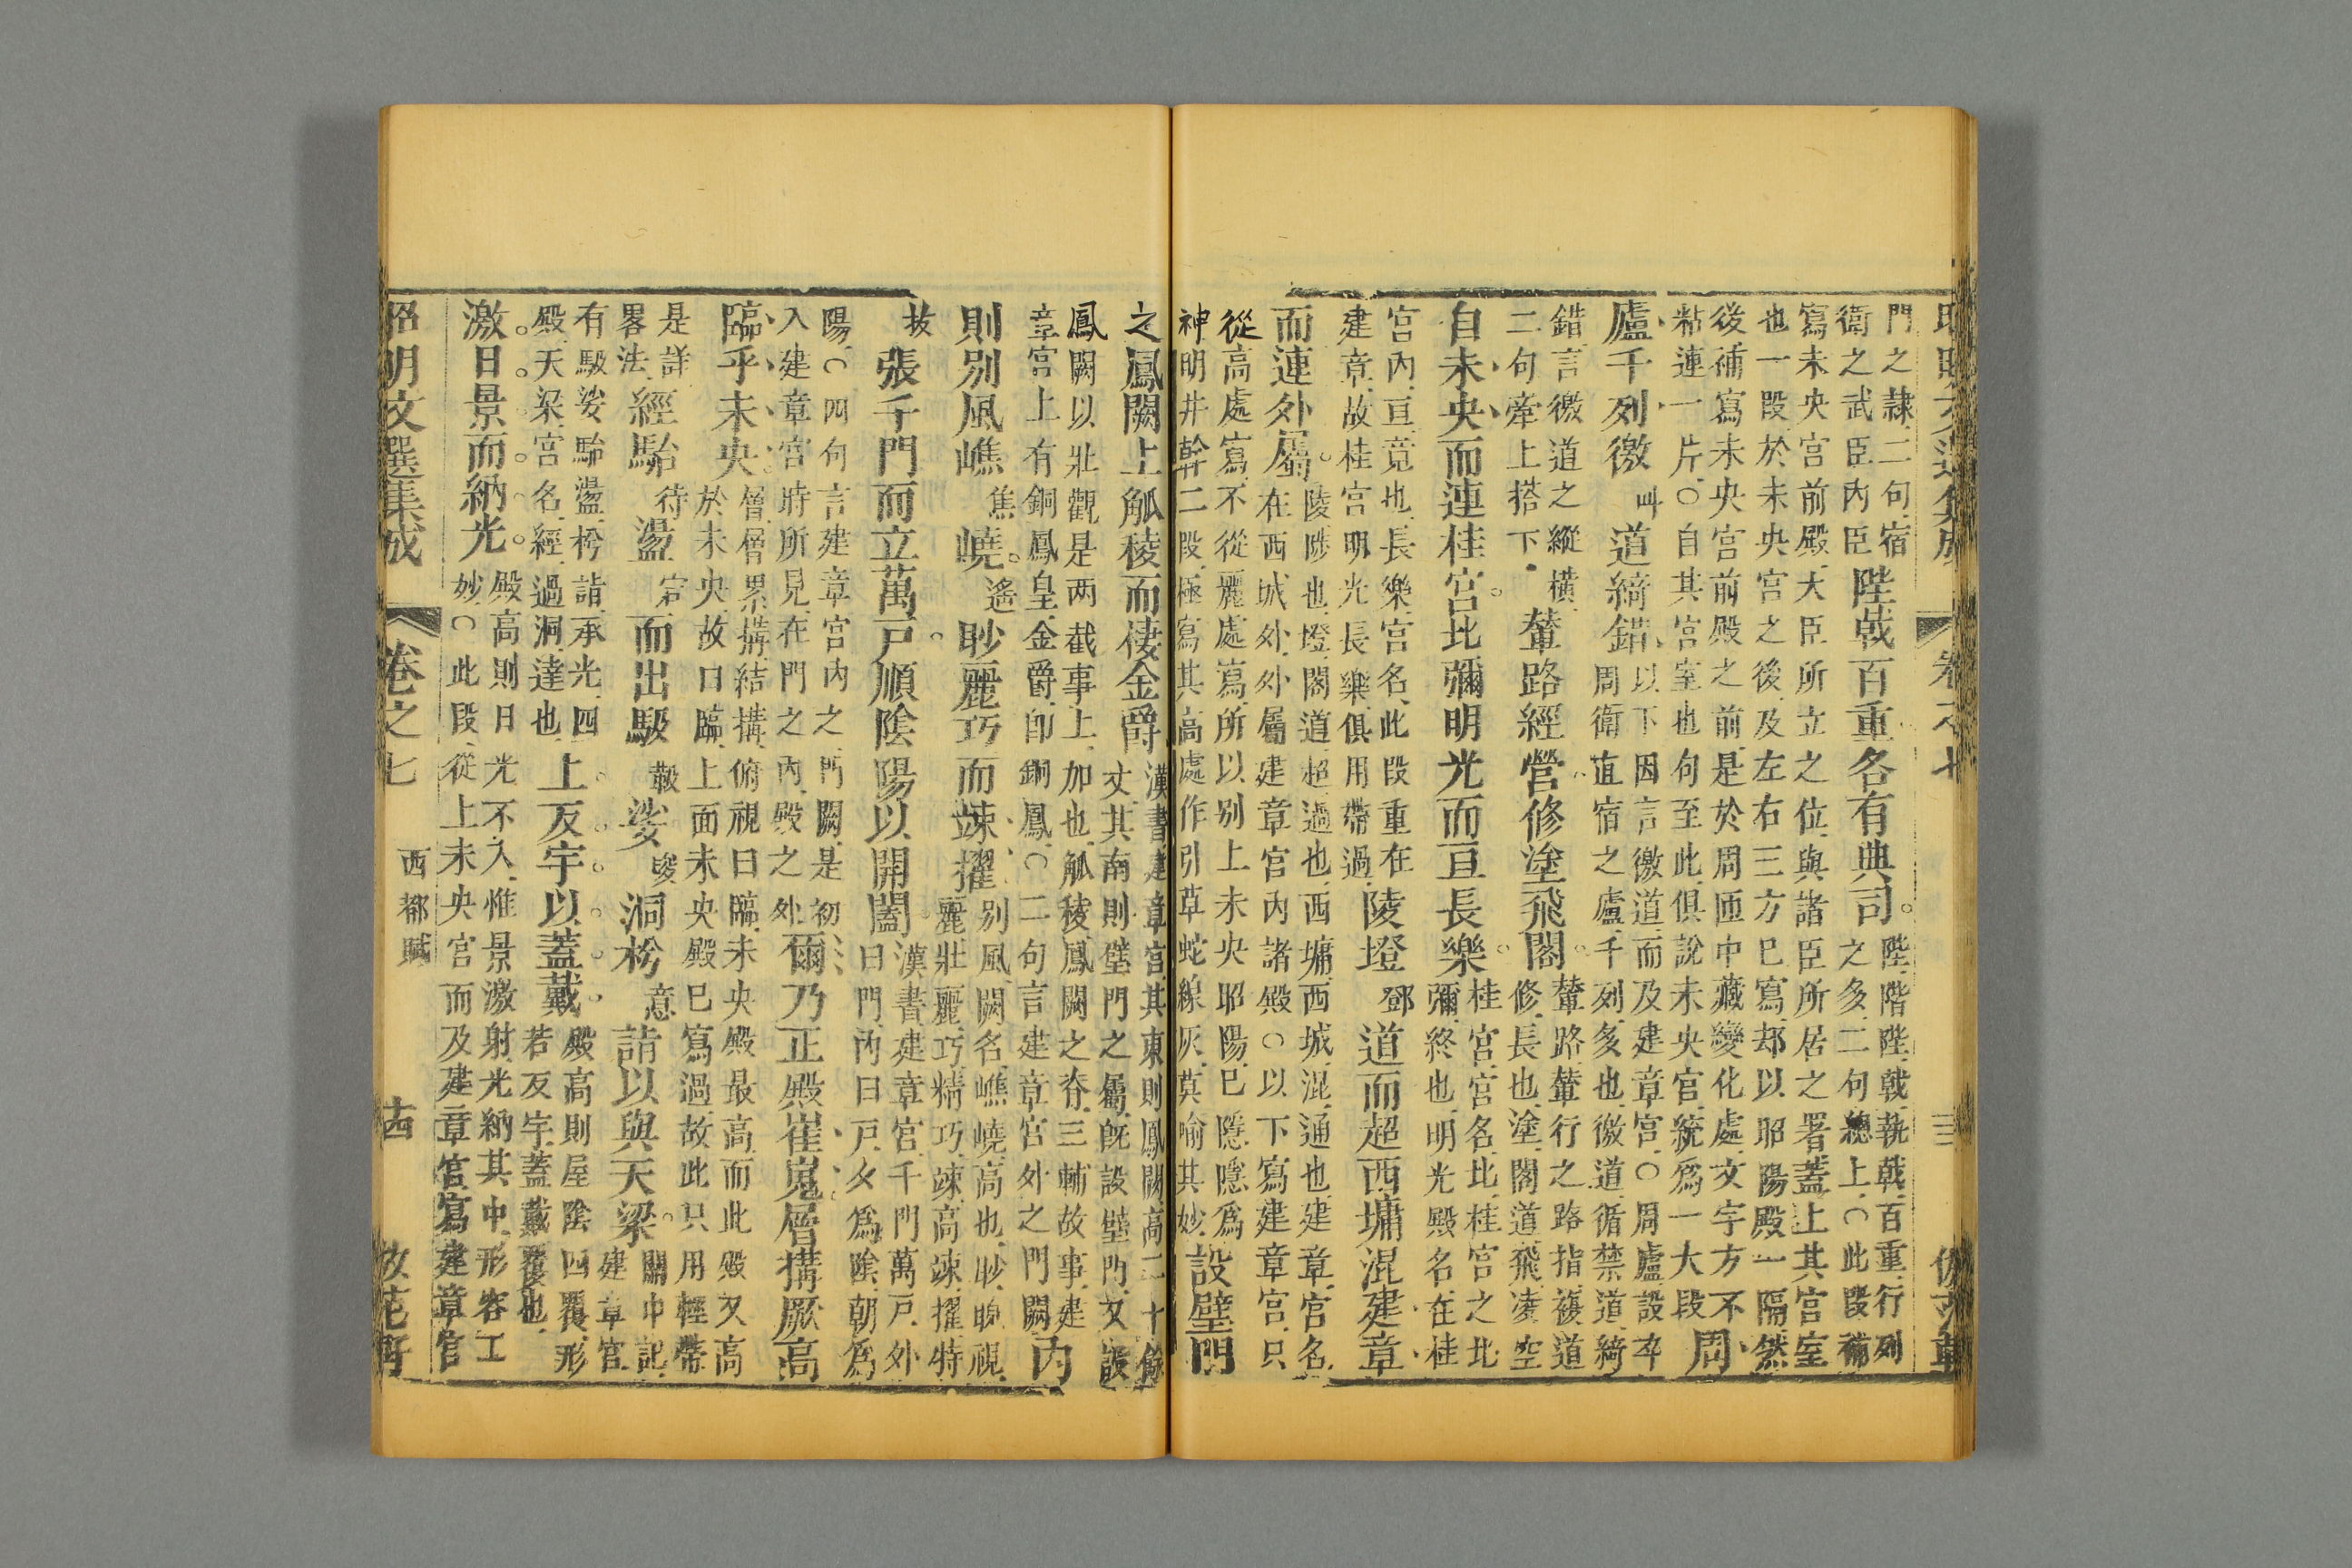 卷之七
門之隸二句宿
衛之武臣內臣
陛戟百重各有典司。
陛階陛戟執戟百重行列
之多二句總上〇此段補
寫未央宮前殿大臣所立之位與諸臣所居之署蓋上其宮室
也一段於未央宮之後及左右三方巳寫却以昭陽殿一隔然
後補寫未央宮前殿之前是於周匝中藏變化處文字方不
粘連一片〇自其宮室也句至此俱說未央宮統爲一大段
周
廬千列徼叫道綺錯
以下因言徼道而及建章宮〇周廬設卒
周衛直宿之廬千列多也徼道循禁道綺
錯言徼道之縱橫
二句牽上搭下
輦路經營修塗飛閣。
輦路輦行之路指複道
修長也塗閣道飛凌空
自未央而連桂宮。北彌明光而亘長樂。
桂宮宮名北桂宮之北
彌終也明光殿名在桂
宮內亘竟也長樂宮名此段重在
建章故桂宮明光長樂俱用帶過
陵墱鄧道而超西墉混建章
而連外屬。
陵陟也墱閣道超過也西墉西城混通也建章宮名
在西城外外屬建章宮內諸殿〇以下寫建章宮只
從高處寫不從麗處寫所以别上未央昭陽巳隱隱爲
神明井幹二段極寫其高處作引草蛇線灰莫喻其妙
設壁門
之鳳闕上觚稜而棲金爵
漢書建章宮其東則鳳闕高二十餘
丈其南則壁門之屬旣設壁門又設
鳳闕以壯觀是两截事上加也觚稜鳳闕之脊三輔故事建
章宮上有銅鳳皇金爵卽銅鳳〇二句言建章宮外之門闕
內
則别風嶕焦嶢。遙眇麗巧而竦擢
别風闕名嶕嶢高也眇眴視
麗壯麗巧精巧竦高竦擢特
拔
張千門而立萬戸。順陰陽以開闔
漢書建章宮千門萬戸外
曰門內曰戸夕爲陰朝爲
陽〇四句言建章宮內之門闕是初
入建章宮時所見在門之內殿之外
爾乃正殿崔嵬。層搆厥高
臨乎未央。
層層累搆結搆俯視曰臨未央殿最高而此殿又高
於未央故曰臨上面未央殿巳寫過故此只用輕帶
是詳
畧法
經駘待盪宕而出馺馺娑洞枍意詣以與天梁。
關中記
建章宮
有馺娑駘盪枍詣承光四
殿天梁宮名經過洞達也
上。反。宇。以。蓋。戴。
殿高則屋陰四覆形
若反宇蓋戴覆也
激。日。景。而。納。光。
殿高則日光不入惟景激射光納其中形容工
妙〇此段從上未央宮而及建章宮寫建章宮
昭明文選集成
卷之七
西都賦